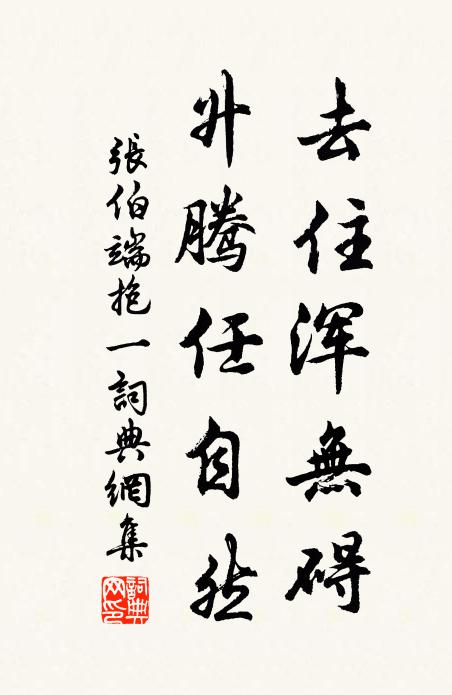 去住浑無碍
升腾任自然
張伯端抱一詞典網集
詞典网印